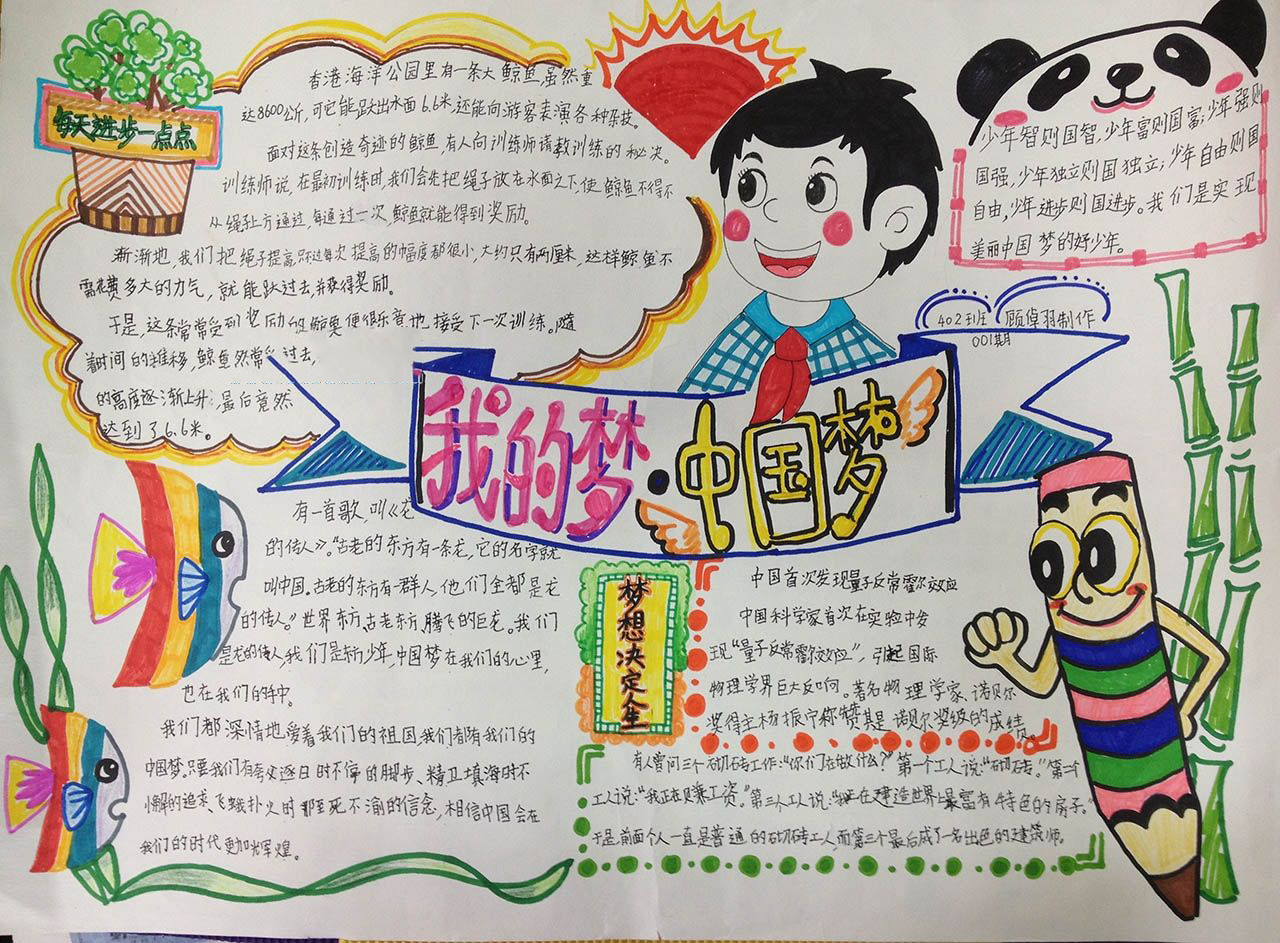 每天进步一点点
香港海洋公园里有一条大鲸鱼,虽然重
达8600公斤,可它能跃出水面6.6米,还能向游客表演各种杂技。
面对这条创造奇迹的鲸鱼,有人向训练师请教训练的秘决。
训练师说,在最初训练时,我们会先把绳子放在水面之下,使鲸鱼不得不
从绳子上方通过,每通过一次,鲸鱼就能得到奖励。
渐渐地,我们把绳子提高,只不过每次提高的幅度都很小,大约只有两厘米,这样鲸鱼不
需花费多大的力气,就能跃过去,并获得奖励。
于是,这条常常受到奖励的鲸鱼便很乐意地接受下一次训练。随
着时间的推移,鲸鱼然常 过去,
的高度逐渐上升,最后竟然
达到了6.6米。
少年智则国智,少年富则国富;少年强则
国强,少年独立则国独立;少年自由则国
自由,少年进步则国进步。我们是实现
美丽中国梦的好少年。
402班 顾倬羽制作
001期
我的梦·中国梦
有一首歌,叫《龙
的传人》。“古老的东方有一条龙,它的名字就
叫中国。古老的东方有一群人,他们全都是龙
的传人。”世界东方,古老东方,腾飞的巨龙。我们
是龙的传人,我们是新少年,中国梦在我们的心里,
也在我们的手中。
我们都深情地爱着我们的祖国,我们都有我们的
中国梦。只要我们有夸父逐日时不停的脚步、精卫填海时不
懈的追求、飞蛾扑火时那至死不渝的信念,相信中国会在
我们的时代更加辉煌。
梦想决定人生
中国首次发现量子反常霍尔效应
中国科学家首次在实验中发
现“量子反常霍尔效应”,引起国际
物理学界巨大反响。著名物理学家、诺贝尔
奖得主杨振宁称赞其是诺贝尔奖级的成绩。
有人曾问三个砌砖工作:“你们在做什么?”第一个工人说:“砌砖。”第二个
工人说:“我正在赚工资。”第三人工人说:“我正在建造世界上最富有特色的房子。”
于是前面个人一直是普通的砌砖工人,而第三个最后成了一名出色的建筑师。